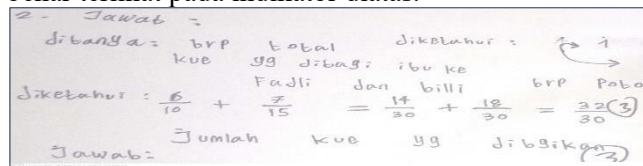 2 - Jawab =
ditanya = brp total diketahui : 1
kue yg dibagi ibu ke
Fadli dan billi brp Poto
diketahui : 6/10 + 7/15 = 14/30 + 18/30 = 32/30 (3)
Jumlah kue yg dibagikan (2)
Jawab =